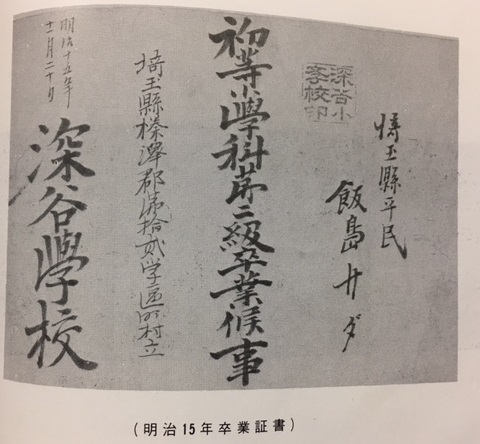 埼玉縣平民
飯島サダ
深谷小
学校印
初等小學科第二級卒業候事
埼玉縣榛澤郡第拾貳学區町村立
明治十五年
十二月二十日
深谷學校
(明治15年卒業証書)